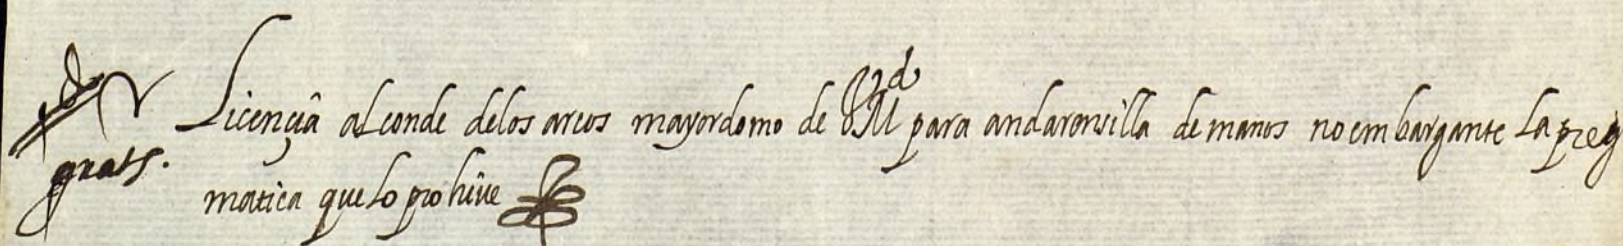 Licençia al conde delos arcos mayordomo de V Md para andar en silla de manos no embargante la preg
grats.
matica que lo prohive